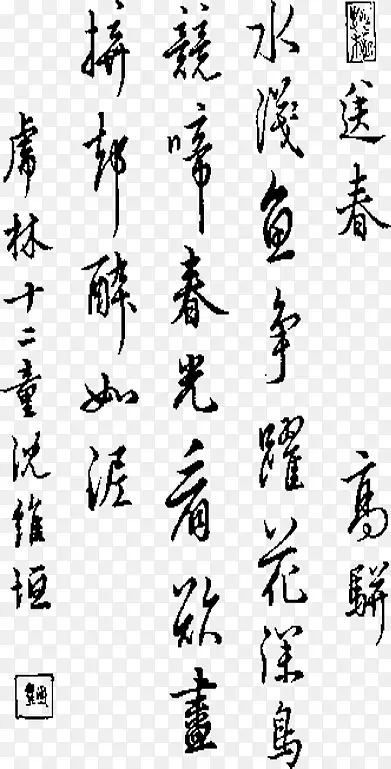 送春 高駢
水淺魚争躍花深鳥
競啼春光看欲盡
拚却醉如泥
虎林十二童沈維垣